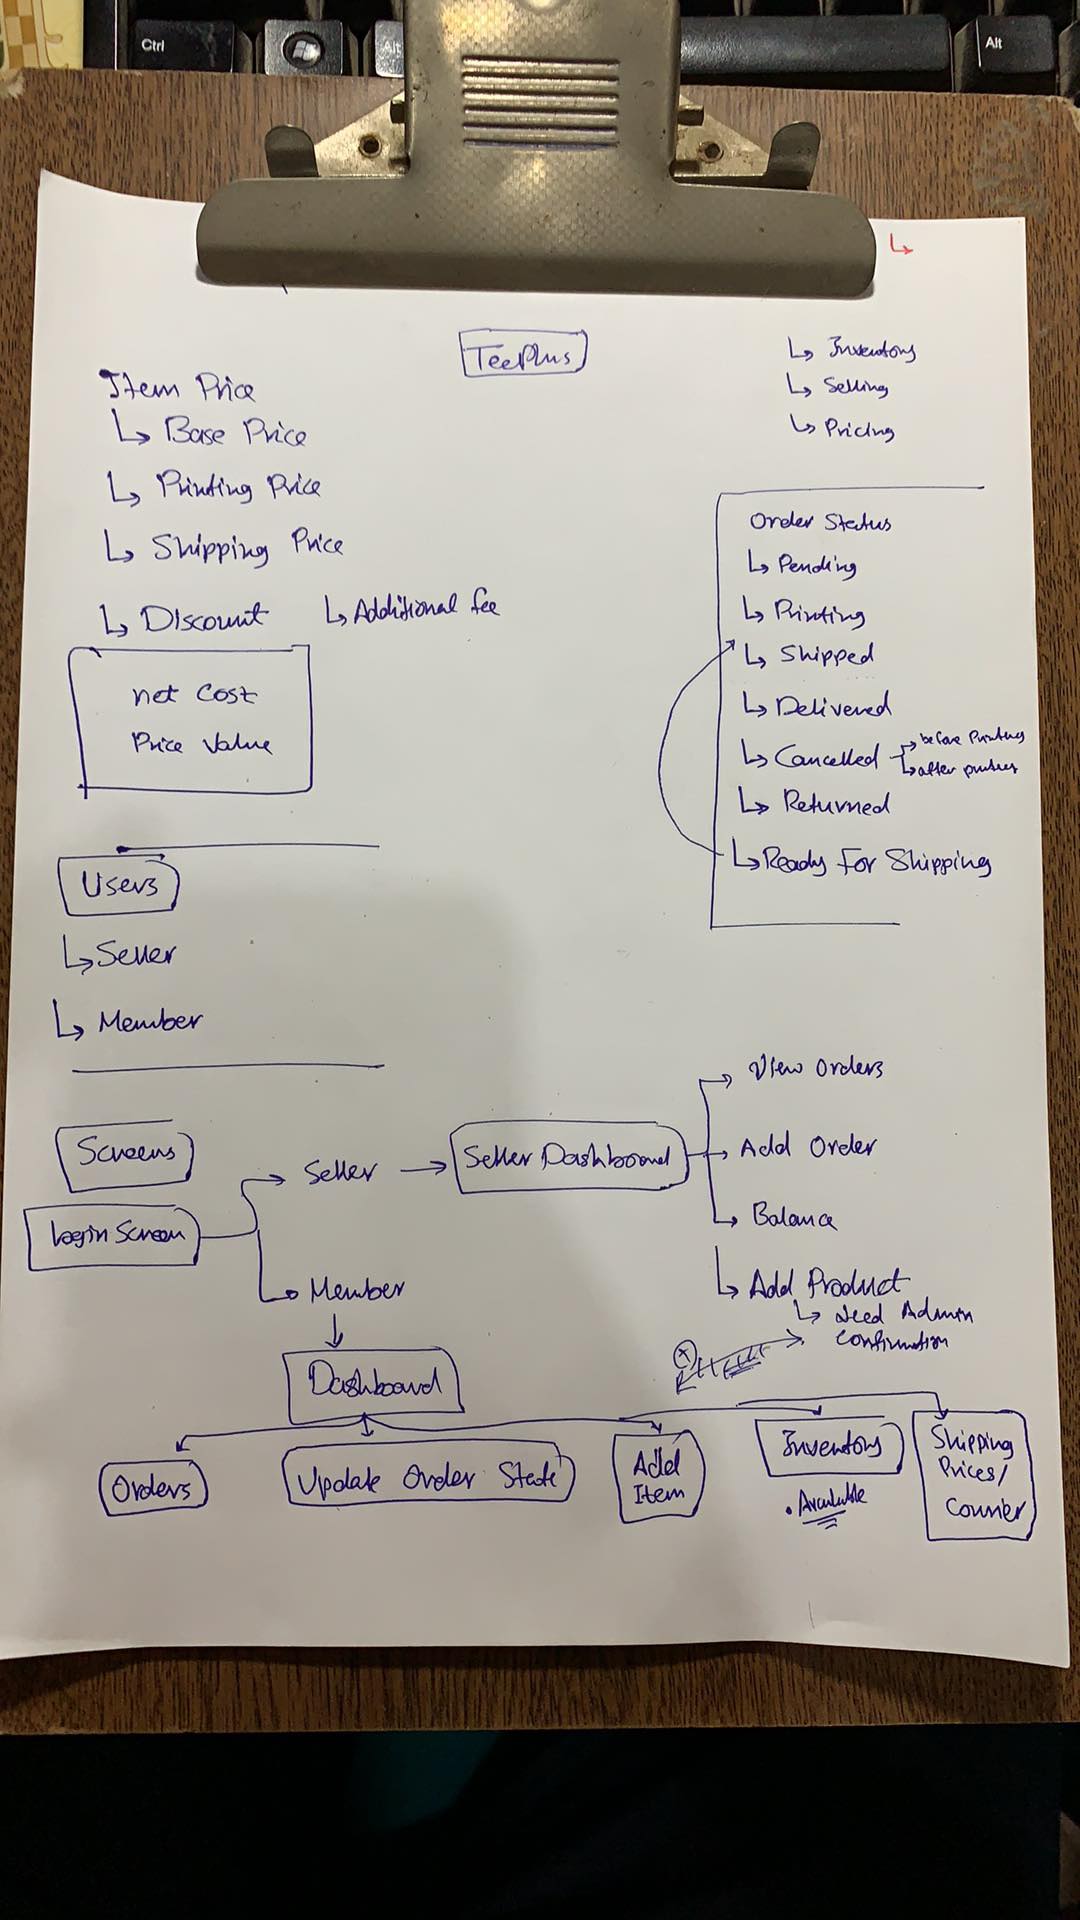 Ctrl
Alt
Alt
TeePlus
Item Price
Base Price
Printing Price
Shipping Price
Discount
Additional fee
net Cost
Price Value
Inventory
Selling
Pricing
Order Status
Pending
Printing
Shipped
Delivered
Cancelled
before Printing
after printing
Returned
Ready For Shipping
Users
Seller
Member
Screens
login Screen
Seller
Seller Dashboard
View Orders
Add Order
Balance
Add Product
need Admin
Confirmation
Member
Dashboard
Orders
Update Order State
Add
Item
Inventory
. Available
Shipping
Prices/
Courrier